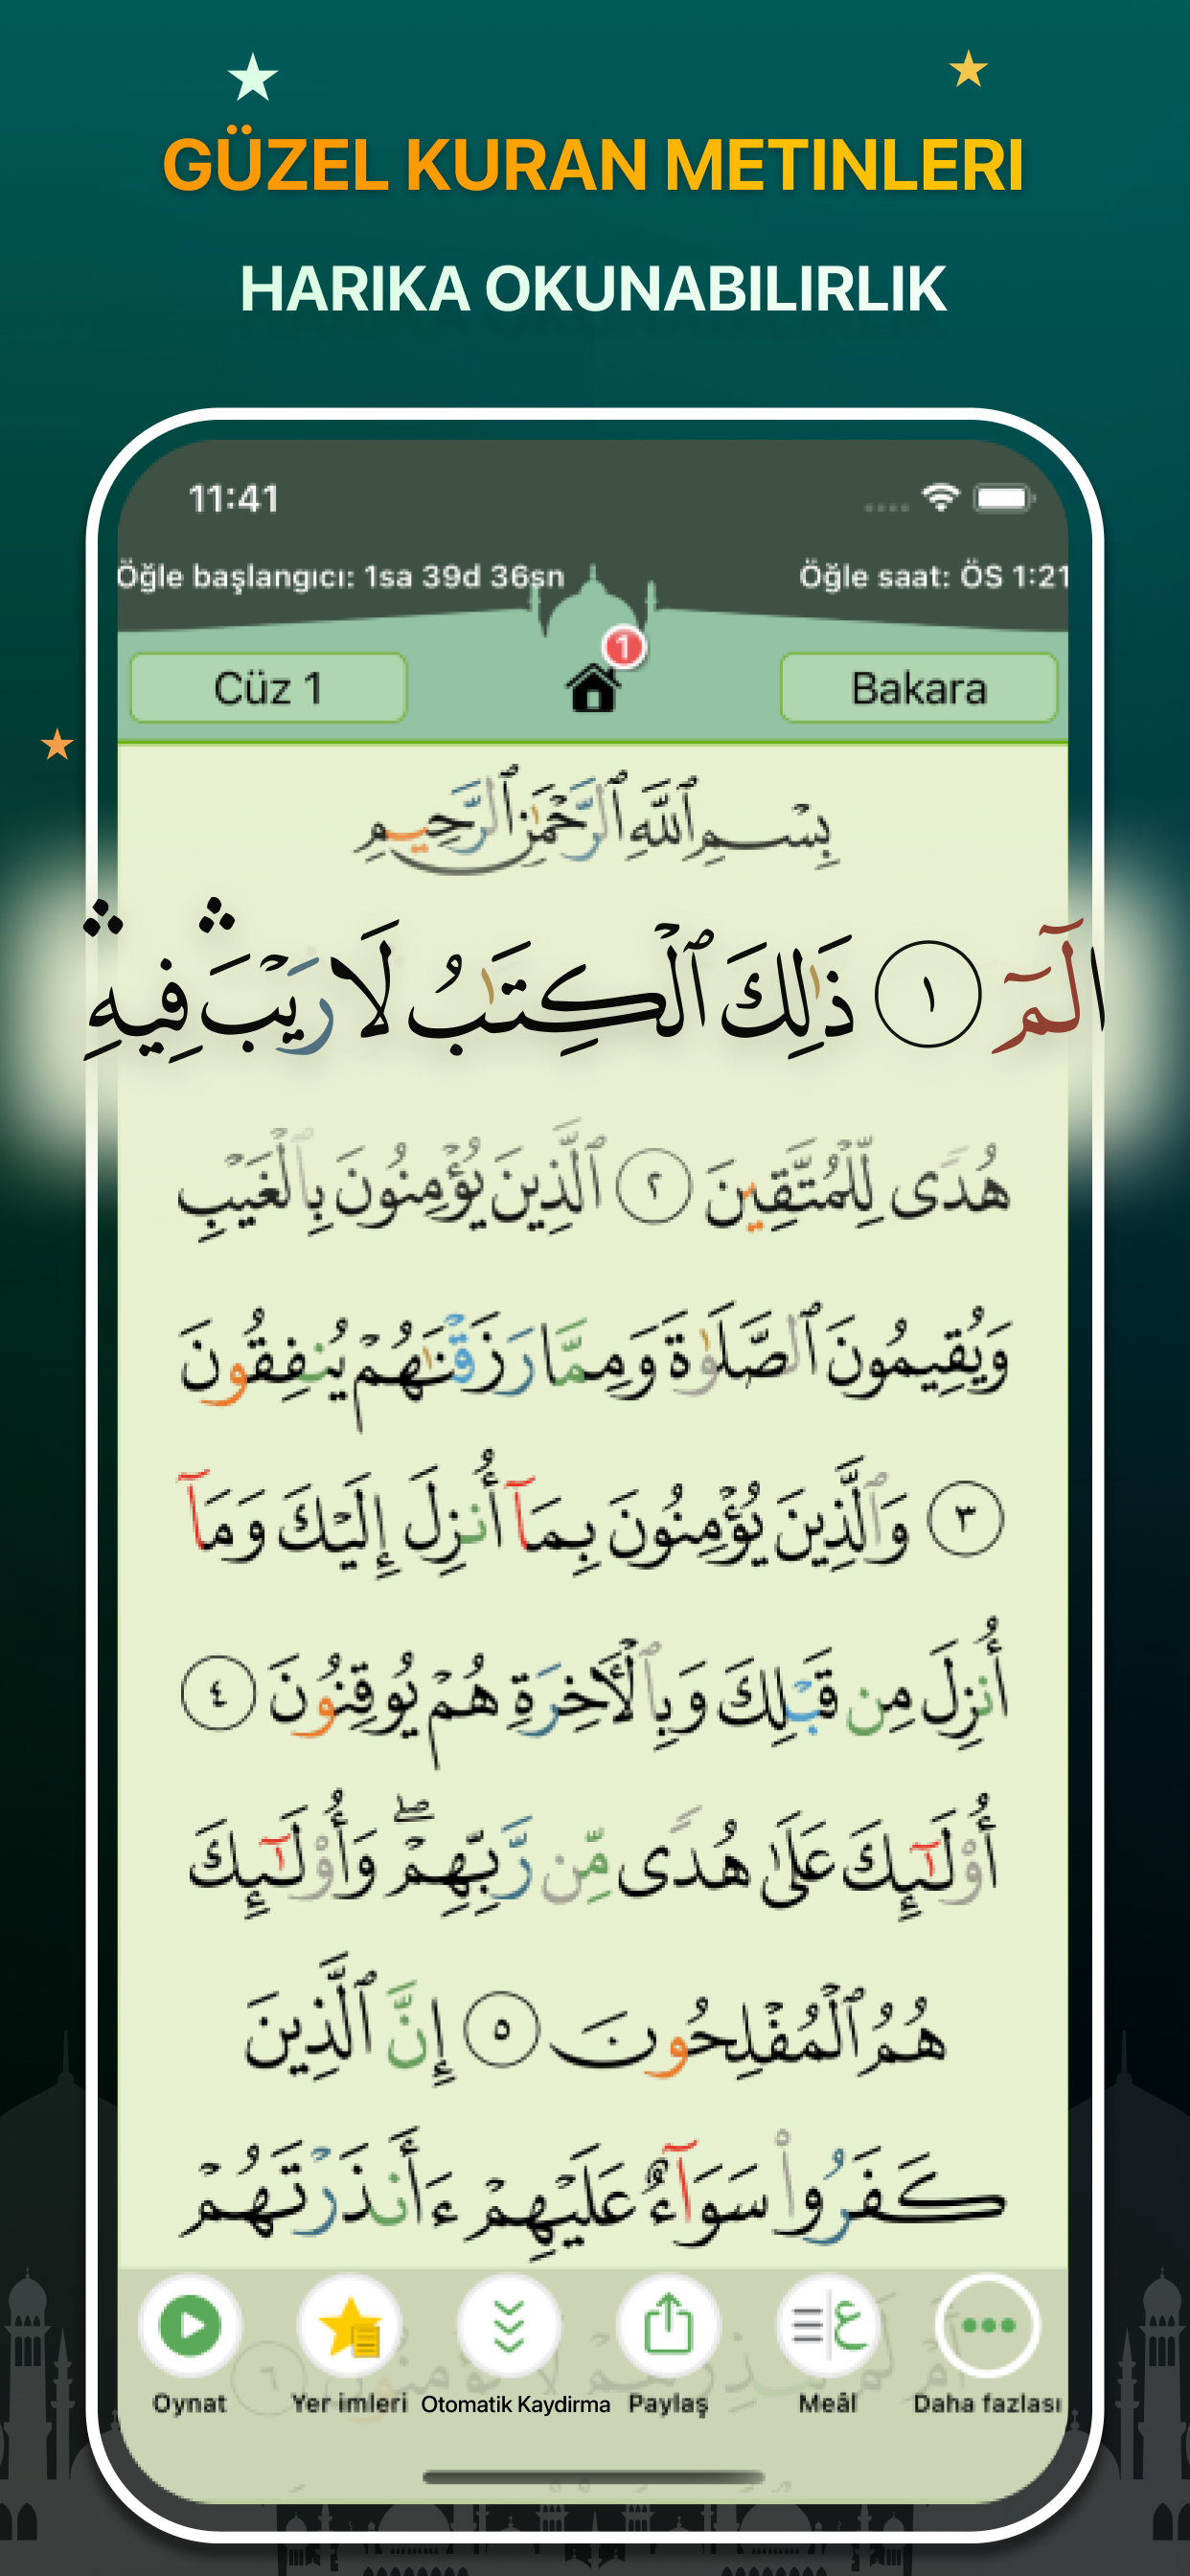 GÜZEL KURAN METINLERI
HARIKA OKUNABILIRLIK
11:41
Öğle başlangıcı: 1sa 39d 36sn
Öğle saat: ÖS 1:21
1
Cüz 1
Bakara
بِسْمِ ٱللَّهِ ٱلرَّحْمَٰنِ ٱلرَّحِيمِ
الٓمٓ ١ ذَٰلِكَ ٱلْكِتَٰبُ لَا رَيْبَ ۛ فِيهِ ۛ
هُدًى لِّلْمُتَّقِينَ ٢ ٱلَّذِينَ يُؤْمِنُونَ بِٱلْغَيْبِ
وَيُقِيمُونَ ٱلصَّلَوٰةَ وَمِمَّا رَزَقْنَٰهُمْ يُنفِقُونَ
٣ وَٱلَّذِينَ يُؤْمِنُونَ بِمَآ أُنزِلَ إِلَيْكَ وَمَآ
أُنزِلَ مِن قَبْلِكَ وَبِٱلْأَخِرَةِ هُمْ يُوقِنُونَ ٤
أُوْلَٰٓئِكَ عَلَىٰ هُدًى مِّن رَّبِّهِمْ ۖ وَأُوْلَٰٓئِكَ
هُمُ ٱلْمُفْلِحُونَ ٥ إِنَّ ٱلَّذِينَ
كَفَرُوا۟ سَوَآءٌ عَلَيْهِمْ ءَأَنذَرْتَهُمْ
أَمْ لَمْ تُنذِرْهُمْ لَا يُؤْمِنُونَ ٦
Oynat
Yer imleri
Otomatik Kaydirma
Paylaş
Meâl
Daha fazlası